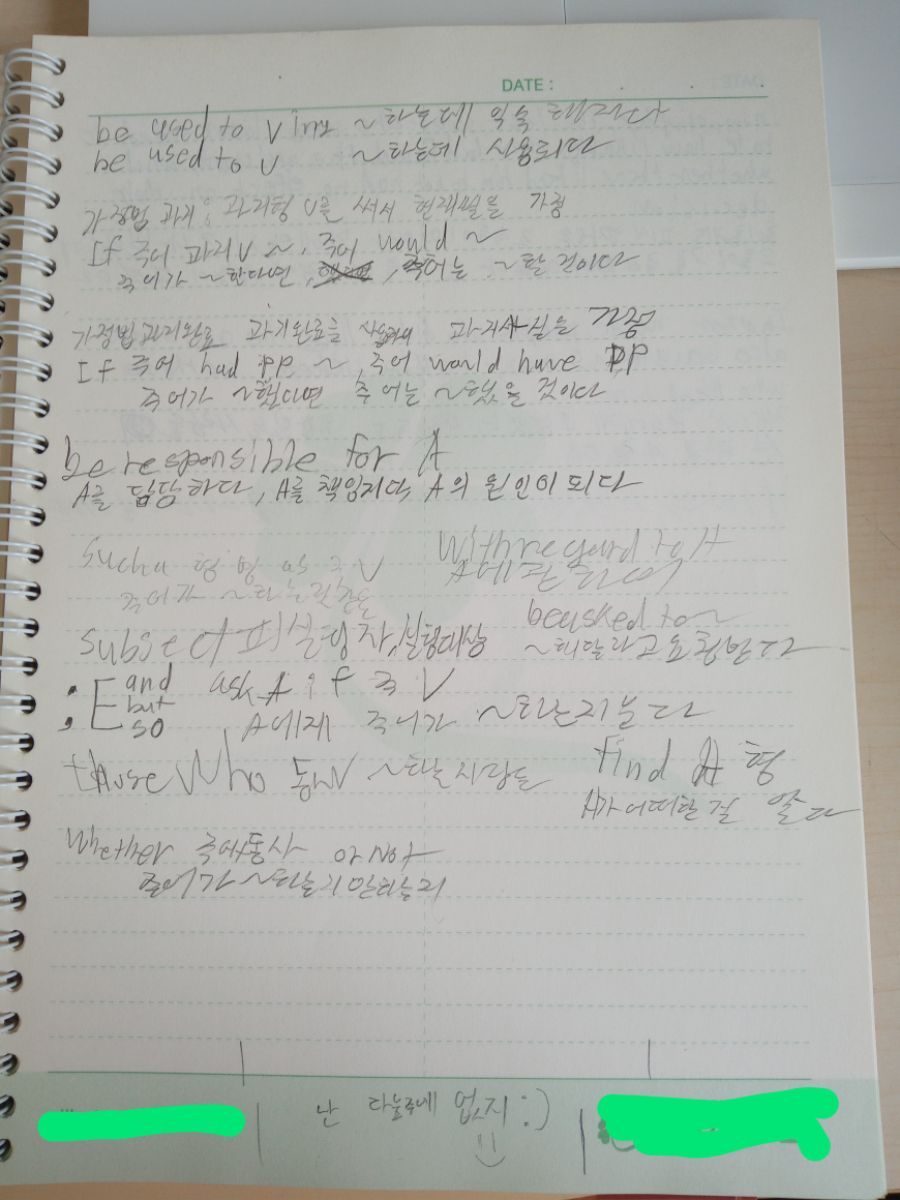 DATE :
be used to Ving ~하는데 익숙해지다
be used to V ~하는데 사용되다
가정법 과거 : 과거형 V를 써서 현재를 가정
If 주어 과거V ~, 주어 would ~
주어가 ~한다면, 주어는 ~할 것이다
가정법 과거완료 과거완료를 과거사실을 가정
If 주어 had pp ~, 주어 would have pp
주어가 ~했다면 주어는 ~했을 것이다
be responsible for A
A를 담당하다, A를 책임지다, A의 원인이 되다
such a 형 명 as 주 V
주어가 ~하는
With regard to A
A에 관하여
subject 피실험자, 실험대상
be asked to ~
~해달라고 요청받다
; [ and but so
ask A if 주 V
A에게 주어가 ~하는지 묻다
those who 동V ~하는 사람들
find A 형
A가 어떠한 걸 알다
Whether 주어동사 or not
주어가 ~하는지 안하는지
난 다눌루에 없지 :)